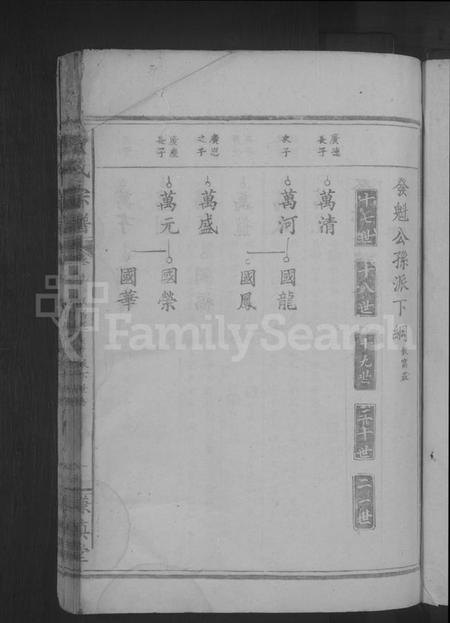 發魁公孫派下綱
十七世 十八世 十九世 二十世 二一世
廣達長子
萬清
次子
萬河 國龍
國鳳
廣忠之子
萬盛
廣產長子
萬元 國榮
國華
氏宗譜
FamilySearch